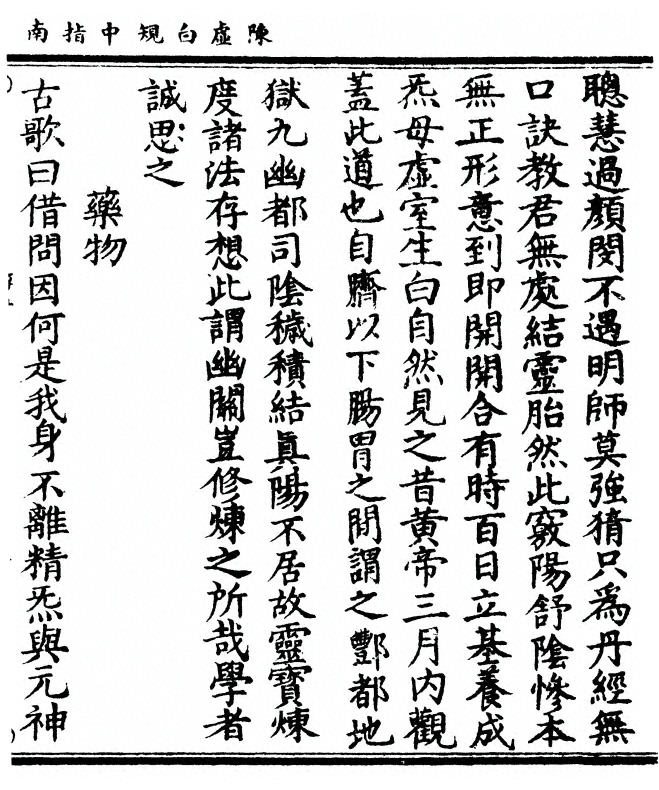 陳虛白規中指南
聰慧過顏閔不遇明師莫強猜只為丹經無
口訣教君無處結靈胎然此竅陽舒陰慘本
無正形意到即開開合有時百日立基養成
炁母虛室生白自然見之昔黃帝三月內觀
蓋此道也自臍以下腸胃之間謂之酆都地
獄九幽都司陰穢積結眞陽不居故靈寶煉
度諸法存想此謂幽關豈修煉之所哉學者
誠思之
藥物
古歌曰借問因何是我身不離精炁與元神